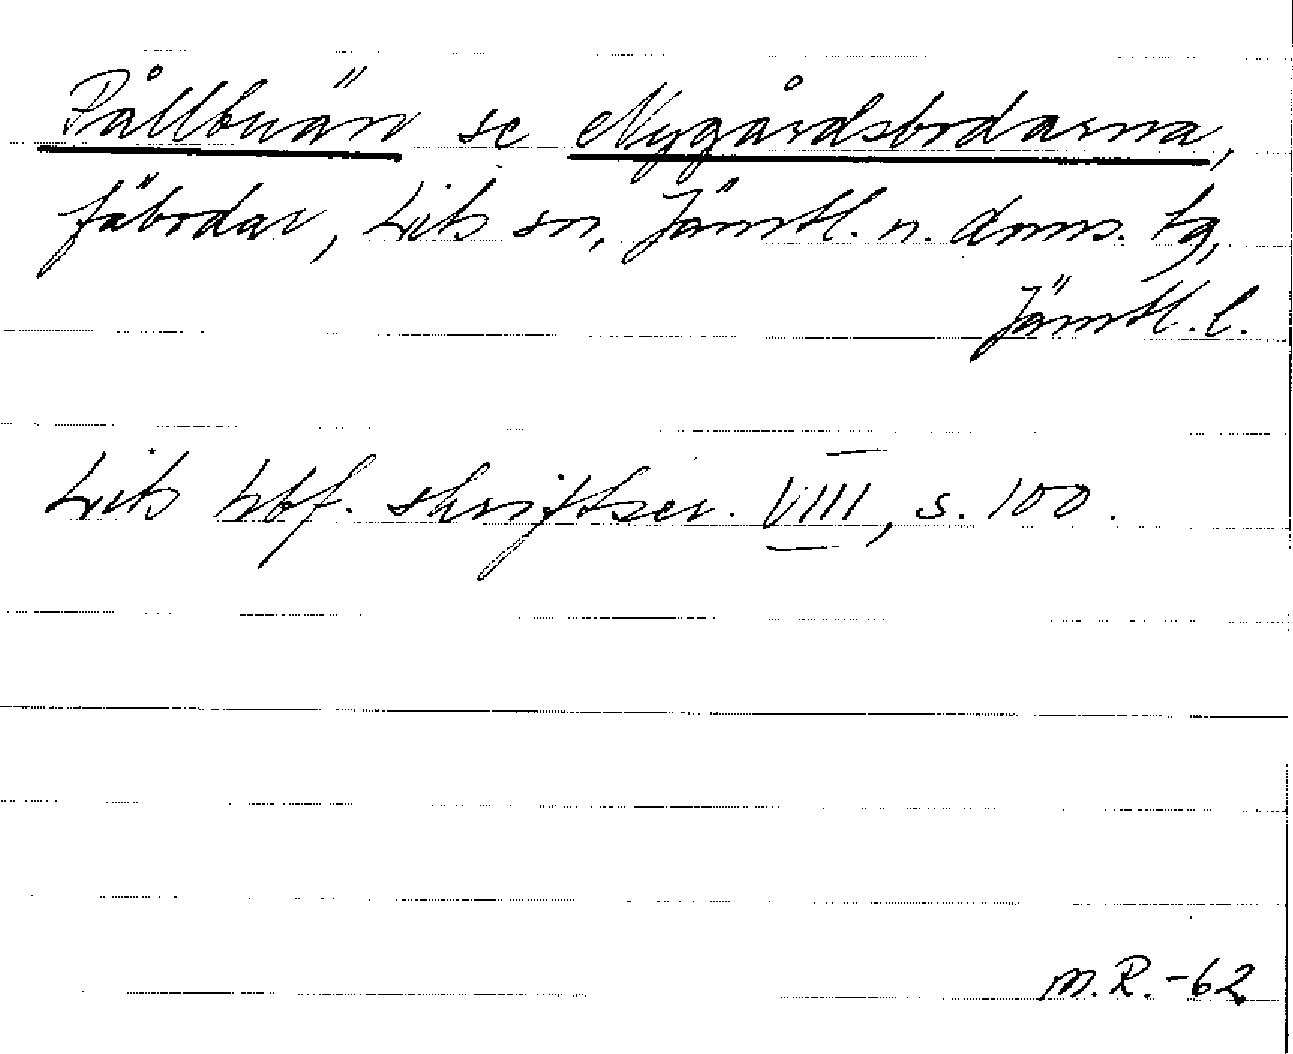 Pållbuän se Nygårdsbodarna,
fäbodar, Lits sn, Jämtl. n. doms. tg,
Jämtl. l.
Lits hbf. skriftser. VIII, s. 100.
M.R.-62